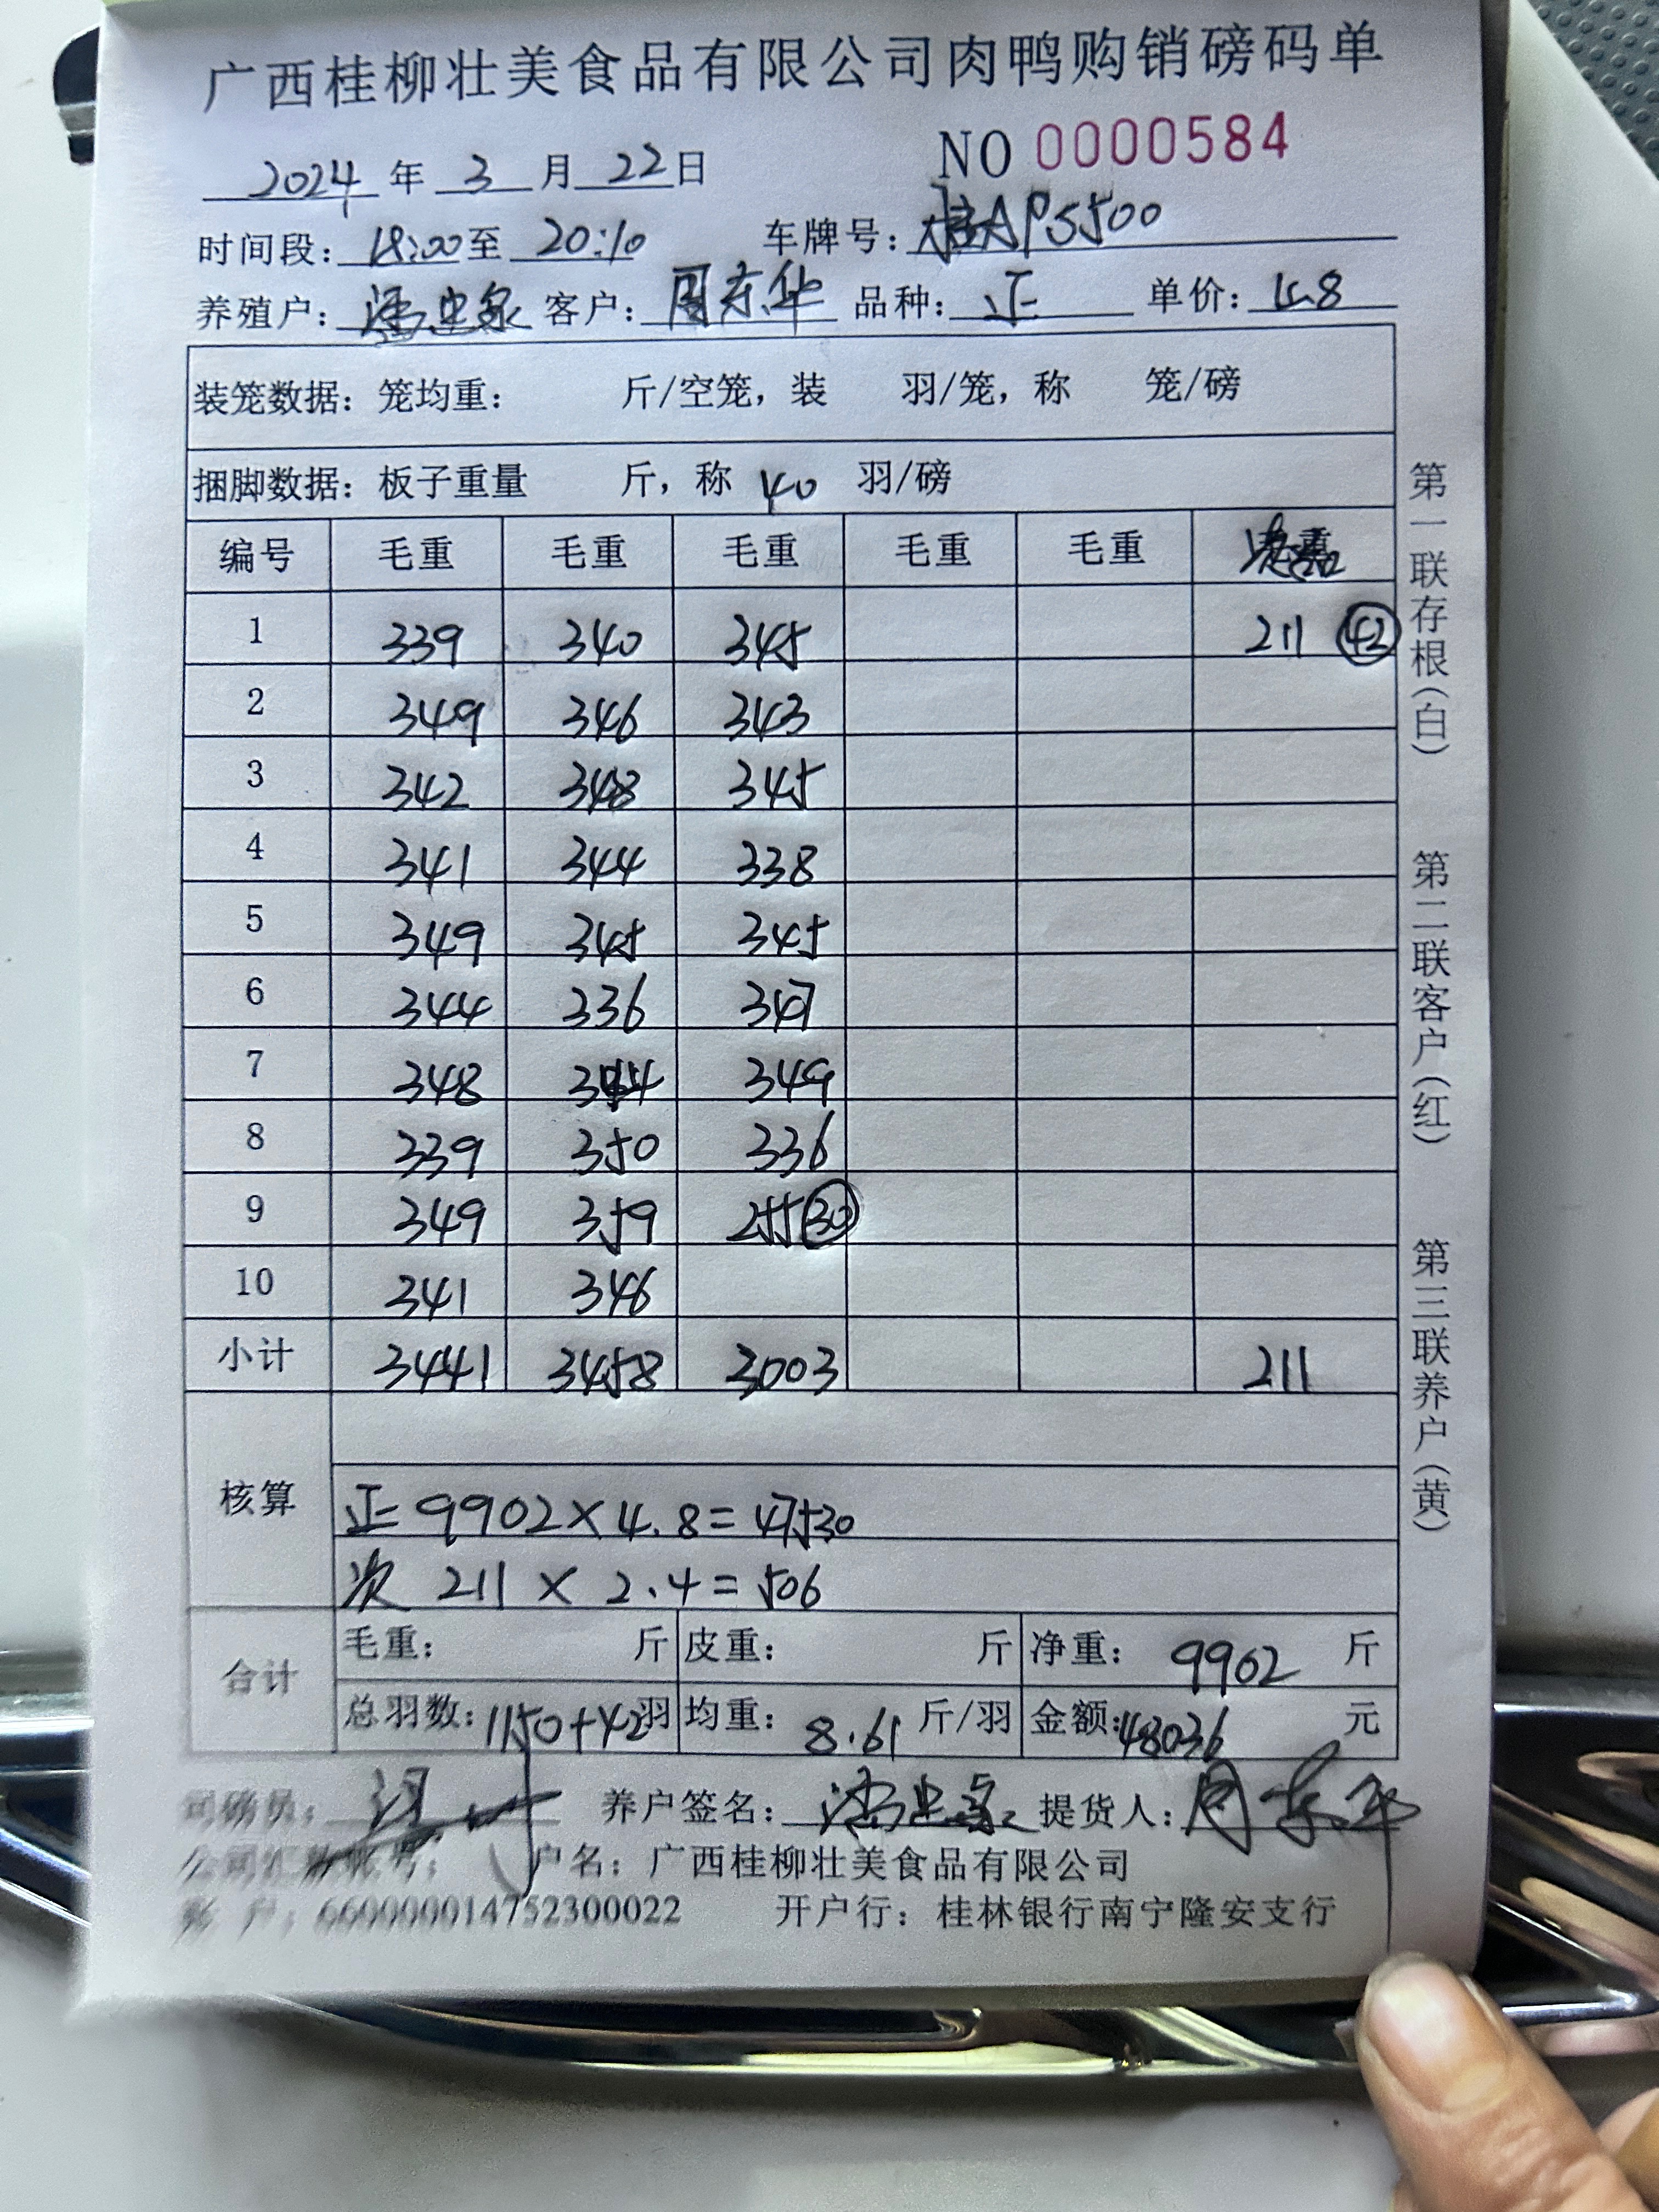 广西桂柳壮美食品有限公司肉鸭购销磅码单
NO 0000584
2024 年 3 月 22 日
时间段: 18:00 至 20:10 车牌号: 桂AP5500
养殖户: 客户: 周东华 品种: 正 单价: 4.8
装笼数据: 笼均重: 斤/空笼, 装 羽/笼, 称 笼/磅
捆脚数据: 板子重量 斤, 称 40 羽/磅
编号 毛重 毛重 毛重 毛重 毛重
1 339 340 345 211 42
2 349 346 343
3 342 348 345
4 341 344 338
5 349 345 345
6 344 336 347
7 348 344 349
8 339 350 336
9 349 359 255 30
10 341 346
小计 3441 3458 3003 211
核算
正 9902×4.8=47530
次 211×2.4=506
合计
毛重: 斤 皮重: 斤 净重: 9902 斤
总羽数: 1150+42 羽 均重: 8.61 斤/羽 金额: 48036 元
司磅员: 养户签名: 提货人: 周东华
公司汇款账号: 户名: 广西桂柳壮美食品有限公司
账 户: 660000014752300022 开户行: 桂林银行南宁隆安支行
第一联存根(白)
第二联客户(红)
第三联养户(黄)